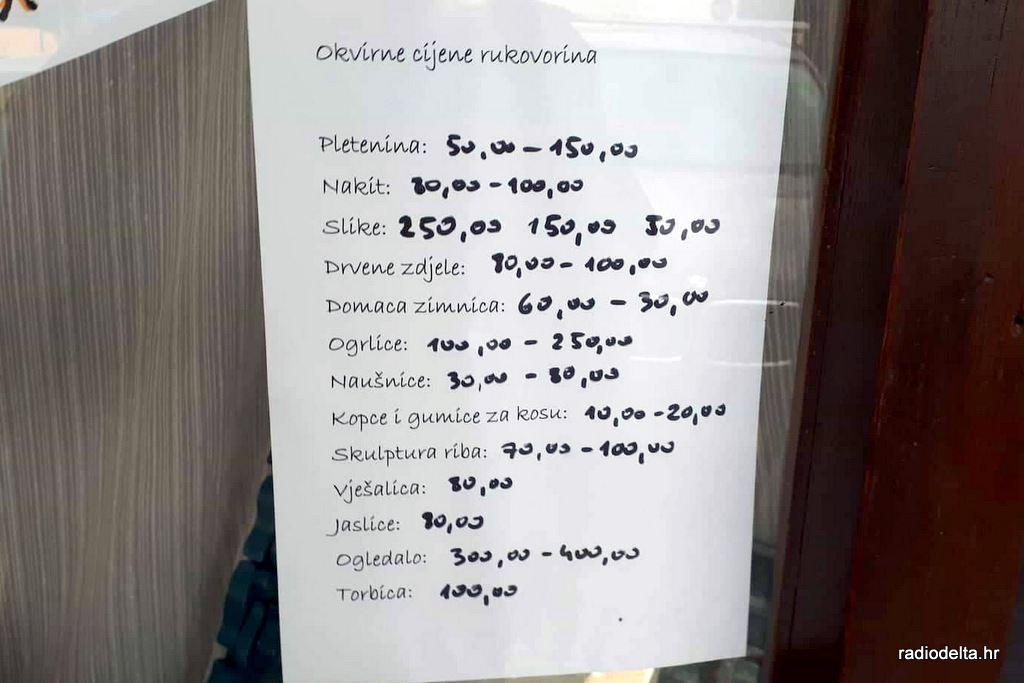 Okvirne cijene rukovorina
Pletenina: 50,00 - 150,00
Nakit: 80,00 - 100,00
Slike: 250,00 150,00 50,00
Drvene zdjele: 80,00 - 100,00
Domaca zimnica: 60,00 - 30,00
Ogrlice: 100,00 - 250,00
Naušnice: 30,00 - 80,00
Kopce i gumice za kosu: 10,00 - 20,00
Skulptura riba: 70,00 - 100,00
Vješalica: 80,00
Jaslice: 80,00
Ogledalo: 300,00 - 400,00
Torbica: 100,00
radiodelta.hr